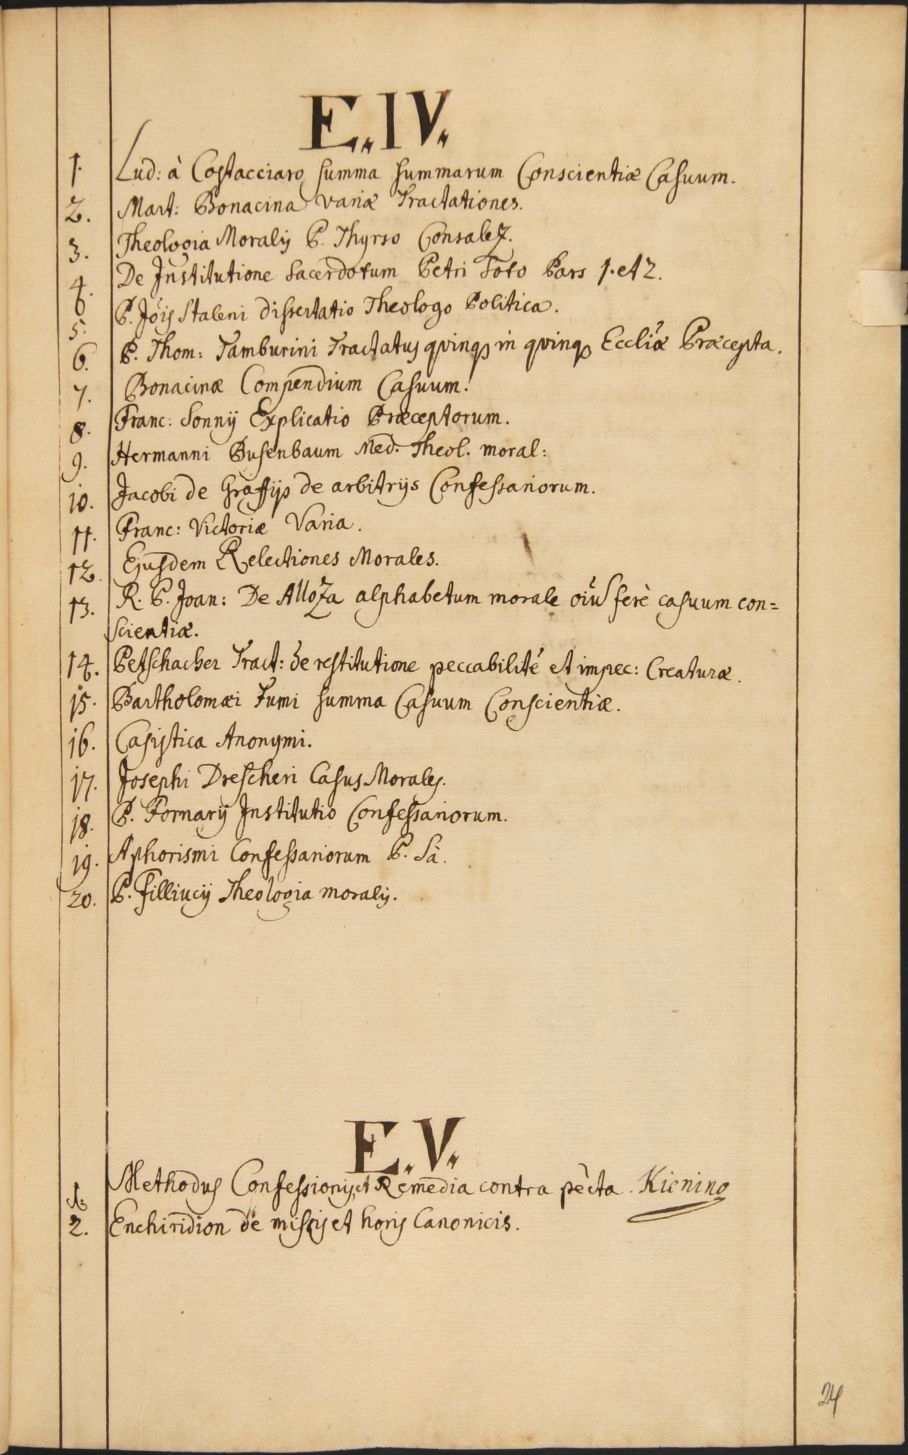 E. IV.
1. Lud: à Costacciaro summa summarum Conscientiæ Casuum.
2. Mart: Bonacina variæ Tractationes.
3. Theologia Moralis P. Thyrso Consalez.
4. De Institutione Sacerdotum Petri Toto Pars 1. et 2.
5. P. Jois Staleni dissertatio Theologo Politica.
6. P. Thom: Tamburini Tractatus quinq in quinq Eccliæ Præcepta.
7. Bonacinæ Compendium Casuum.
8. Franc: Sonnij Explicatio Præceptorum.
9. Hermanni Busenbaum Med. Theol. moral:
10. Jacobi de Graffijs de arbitrijs Confessariorum.
11. Franc: Victoriæ Varia.
12. Ejusdem Relectiones Morales.
13. R. P. Joan: De Alloza alphabetum morale oiu ferè casuum con=
scientiæ.
14. Petschacher Tract: de restitutione peccabilité et impec: Creaturæ.
15. Bartholomæi Fumi summa Casuum Conscientiæ.
16. Casistica Anonymi.
17. Josephi Drescheri Casus Morales.
18. P. Fornarij Institutio Confessariorum.
19. Aphorismi Confessariorum P. Sà.
20. P. Filliucij Theologia moralis.
E. V.
1. Methodus Confessionis, et Remedia contra pècta. Kiening
2. Enchiridion de missis et horis Canonicis.
24